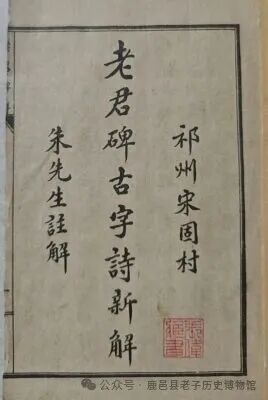 祁州宋固村
老君碑古字詩新解
朱先生註解
公众号·鹿邑县老子历史博物馆